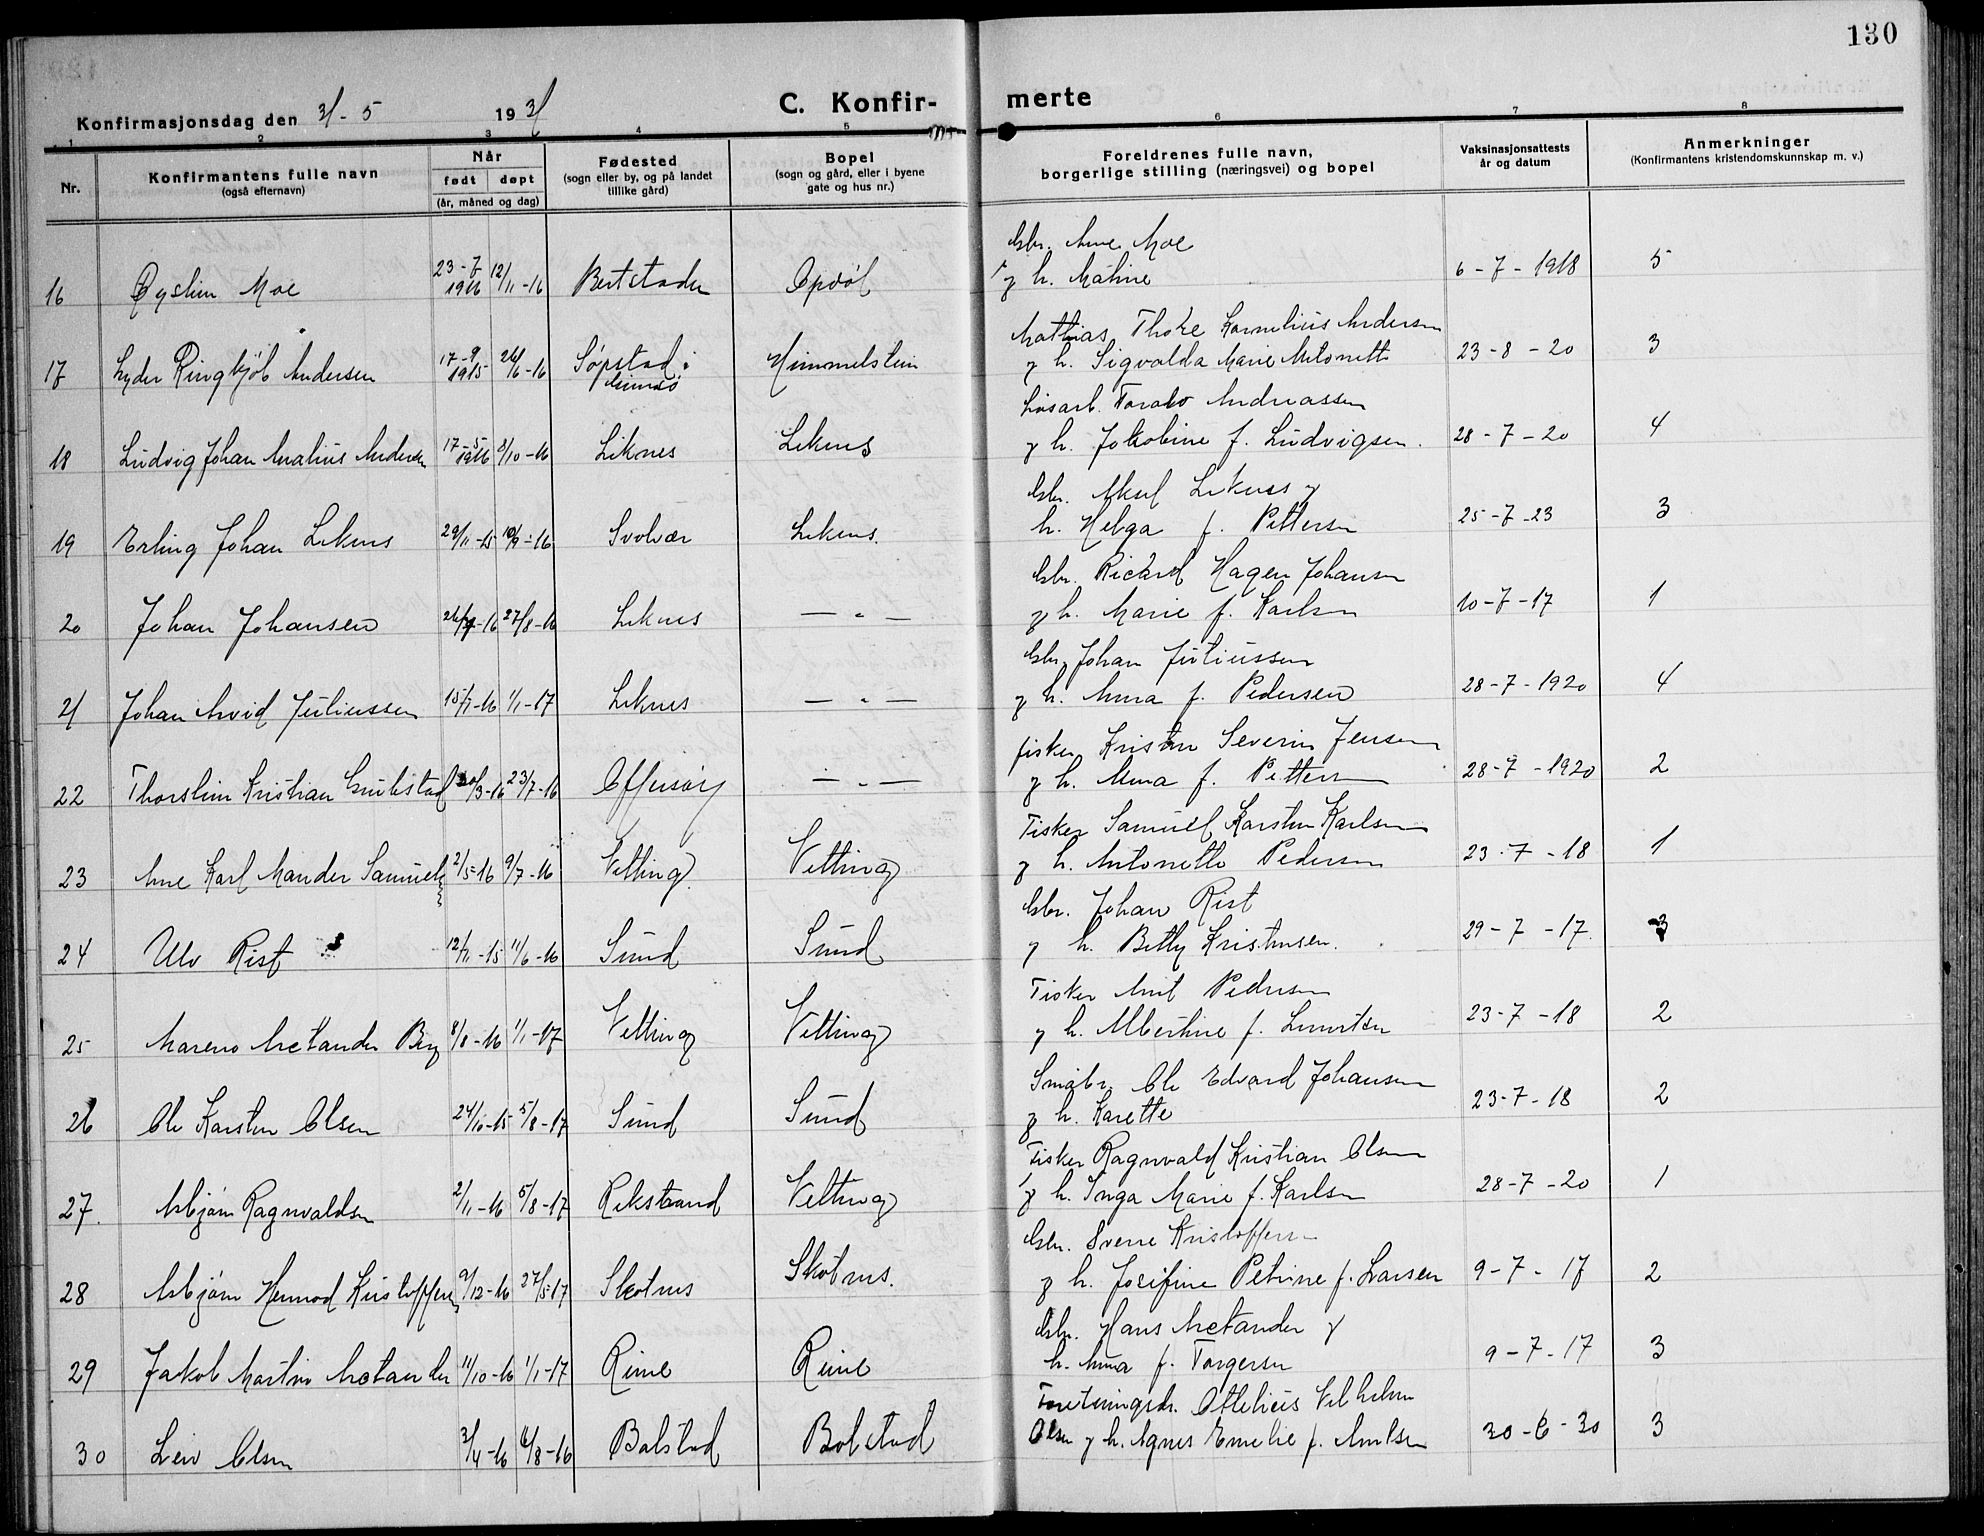 130
Konfirmasjonsdag den 31-5 1931
C. Konfir-
merte
1 2 3 4 5 6 7 8
Nr.
Konfirmantens fulle navn
(også efternavn)
Når
født døpt
(år, måned og dag)
Fødested
(sogn eller by, og på landet
tillike gård)
Bopel
(sogn og gård, eller i byene
gate og hus nr.)
Foreldrenes fulle navn,
borgerlige stilling (næringsvei) og bopel
Vaksinasjonsattests
år og datum
Anmerkninger
(Konfirmantens kristendomskunnskap m. v.)
Gbr. Arne Moe
16 Øystein Moe 23-7 1916 12/11-16 Opdøl og h. Maline 6-7-1918 5
Mathias Thore Kornelius Andersen
17 Lyder Ringkjøb Andersen 17-9 1915 26/6-16 Søpstad i Gimsø Himmelstein og h. Sigvalda Marie Antonette 23-8-20 3
Løsarb. Andreassen
18 Ludvig Johan Analius Andersen 17-5- 1916 8/10-16 Liknes Leknes og h. Jakobine f. Ludvigsen. 28-7-20 4
Gbr. Aksel Leknes og
19 Erling Johan Leknes 29/11-15 10/9-16 Svolvær Leknes. h. Helga f. Pettersen 25-7-23 3
Gbr. Rickard Hagen Johansen
20 Johan Johansen 26/4-16 27/8-16 Leknes — " — og h. Marie f. Karlsen 10-7-17 1
Gbr. Johan Juliussen
21 Johan Arvid Juliussen 15/7-16 1/1-17 Leknes — " — og h. Anna f. Pedersen 28-7-1920 4
fisker Kristen Severin Jensen
22 Thorstein Kristian 20/3-16 23/7-16 Offersøy — " — og h. Anna f. Pettersen 28-7-1920 2
Fisker Samuel Karsten Karlsen
23 Arne Karl Mander Samuels 2/5-16 9/7-16 Vetting Vetting og h. Antonette Pedersen 23-7-18 1
Gbr. Johan Rist
24 Ulv Rist 12/11-15 11/6-16 Sund Sund og h. Betty Kristensen. 29-7-17. 3
Fisker Arnt Pedersen
25 Mareno Aretander Berg 8/8-16 1/1-17 Vetting Vetting og h. Albertine f. 23-7-18 2
Småbr. Ole Edvard Johansen
26 Ole Karsten Olsen 24/10-15 5/8-17 Sund Sund og h. Karette 23-7-18 2
Fisker Ragnvald Kristian Olsen
27. Asbjørn Ragnvaldsen 2/11-16 5/8-17 Rekstrand Vetting og h. Inga Marie f. Karlsen 28-7-20 1
Gbr. Sverre Kristoffersen
28 Asbjørn Hermod Kristoffersen 9/12-16 27/5-17 Skotnes Skotnes. og h. Josefine Petrine f. Larsen 9-7-17 2
Gbr. Hans Aretander og
29 Jakob Martin Aretander 11/10-16 1/1-17 Reine Reine h. Anna f. Torgersen 9-7-17 3
Foretningsdr. Ottelius Vilhelm
30 Leiv Olsen 3/4-16 6/8-16 Balstad Balstad Olsen og h. Agnes Emelie f. Antsen 30-6-30 3